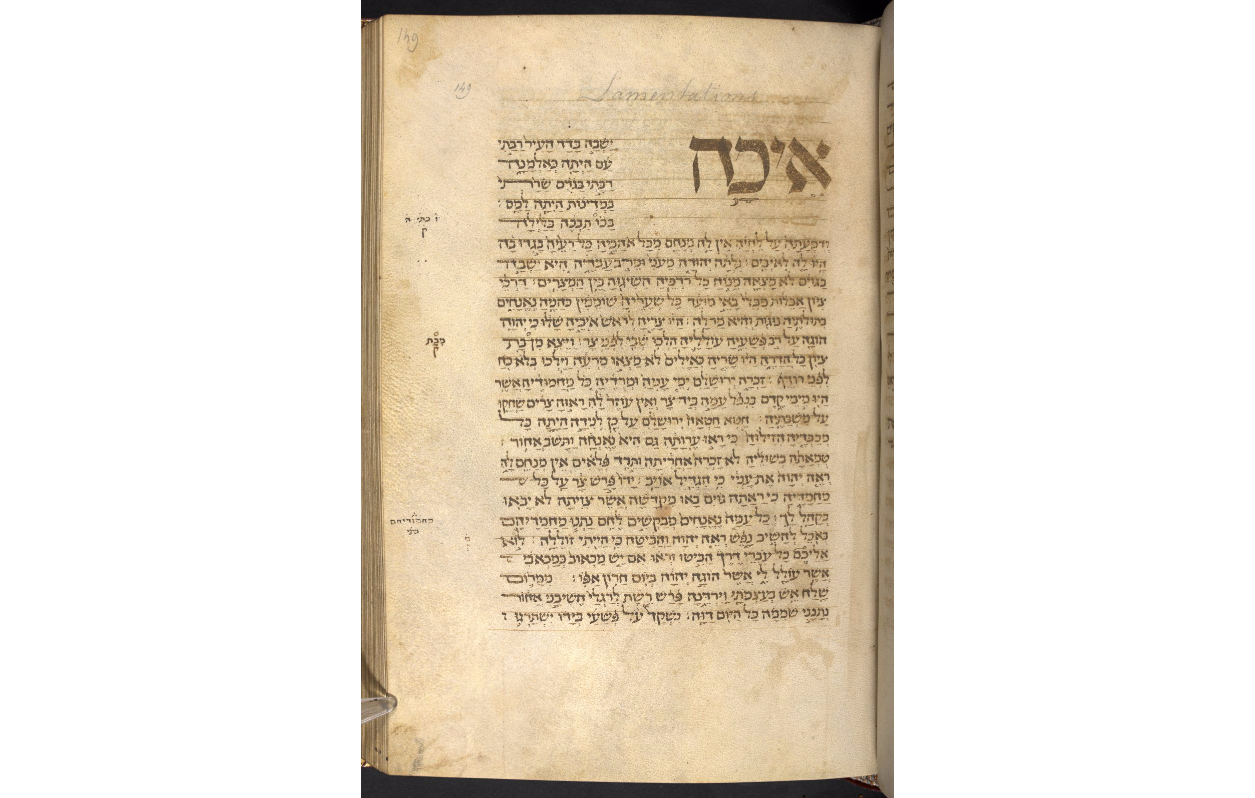 149
149
Lamentations
איכה
ישבה בדד העיר רבתי
עם היתה כאלמנה
רבתי בגוים שרתי
במדינות היתה למס :
בכו תבכה בלילה
ודמעתה על לחיה אין לה מנחם מכל אהביה כל רעיה בגדו בה
היו לה לאיבים : גלתה יהודה מעני ומרב עבדיה היא ישבה
בגוים לא מצאה מנוח כל רדפיה השיגוה בין המצרים : דרכי
ציון אבלות מבלי באי מועד כל שעריה שוממין כהניה נאנחים
בתולתיה נוגות והיא מר לה : היו צריה לראש איביה שלו כי יהוה
הוגה על רב פשעיה עולליה הלכו שבי לפני צר : ויצא מן בת
ציון כל הדרה היו שריה כאילים לא מצאו מרעה וילכו בלא כח
לפני רודף : זכרה ירושלם ימי עניה ומרודיה כל מחמודיה אשר
היו מימי קדם בנפל עמה ביד צר ואין עוזר לה ראוה צרים שחקו
על משבתיה : חטא חטאה ירושלם על כן לנידה היתה כל
מכבדיה הזילוה כי ראו ערותה גם היא נאנחה ותשב אחור :
טמאתה בשוליה לא זכרה אחריתה ותרד פלאים אין מנחם לה
ראה יהוה את עניי כי הגדיל אויב : ידו פרש צר על כל
מחמדיה כי ראתה גוים באו מקדשה אשר צויתה לא יבאו
בקהל לך : כל עמה נאנחים מבקשים לחם נתנו מחמודיהם
באכל להשיב נפש ראה יהוה והביטה כי הייתי זוללה : לוא
אליכם כל עברי דרך הביטו וראו אם יש מכאוב כמכאבי
אשר עולל לי אשר הוגה יהוה ביום חרון אפו : ממרום
שלח אש בעצמתי וירדנה פרש רשת לרגלי השיבני אחור
נתנני שממה כל היום דוה : נשקד על פשעי בידו ישתרגו
מבת
ק
מחמודיהם